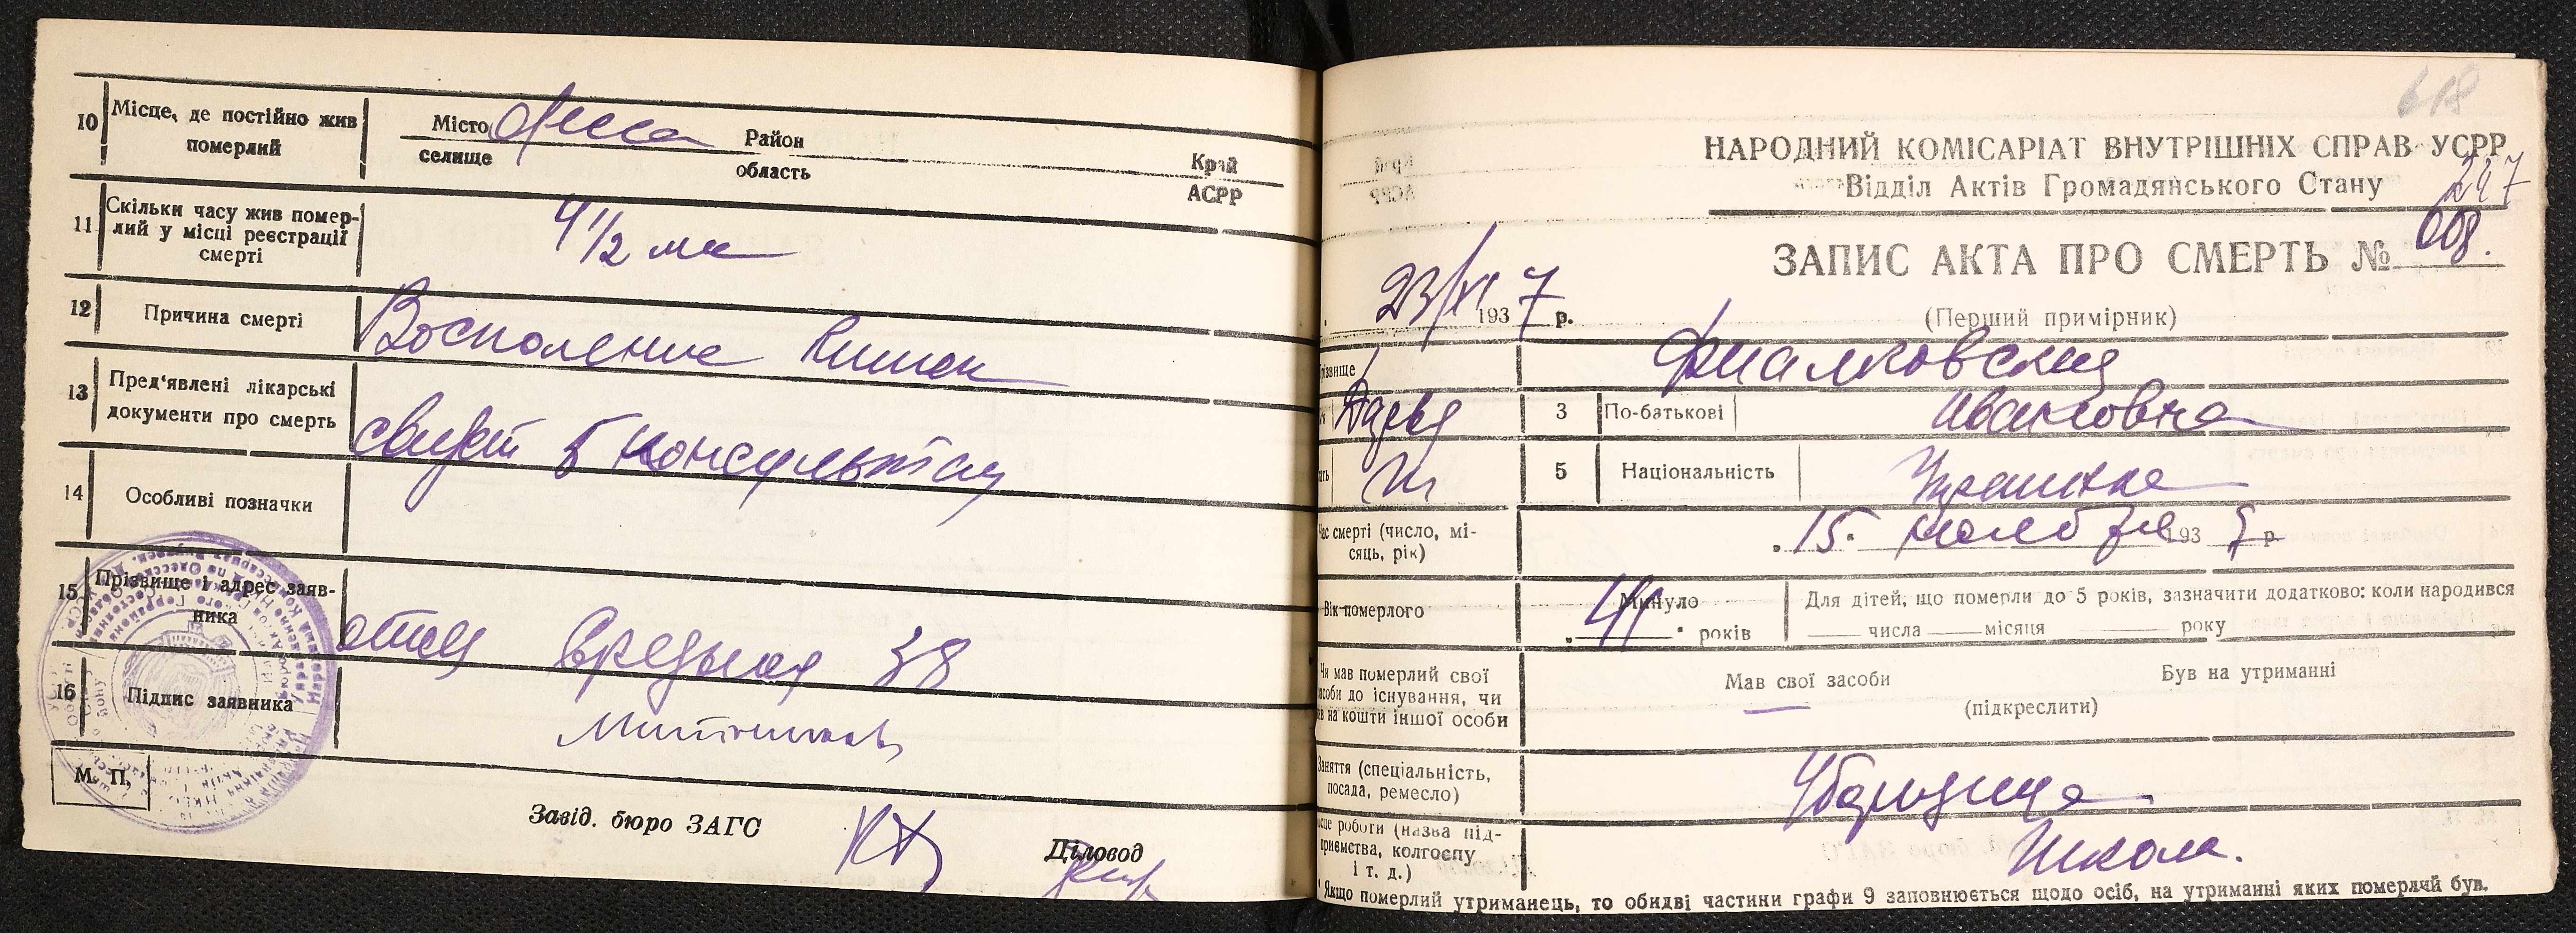 10 Місце, де постійно жив
померлий
Місто Одесса Район Край
селище область АСРР
11 Скільки часу жив помер-
лий у місці реєстрації
смерті
4 1/2 ме
12 Причина смерті Восполение Кишек
13 Пред'явлені лікарські
документи про смерть
14 Особливі позначки
15 Прізвище і адрес заяв-
ника
отец Средная 38
16 Підпис заявника
М. П.
Завід. бюро ЗАГС Діловод
618
НАРОДНИЙ КОМІСАРІАТ ВНУТРІШНІХ СПРАВ УСРР
Відділ Актів Громадянського Стану
247
ЗАПИС АКТА ПРО СМЕРТЬ № 608.
23/XI 1937 р. (Перший примірник)
різвище Фиалковская
3 По-батькові Ивановна
5 Національність
Час смерті (число, мі-
сяць, рік)
15. Ноября 1937 р.
Вік померлого Минуло
років
Для дітей, що померли до 5 років, зазначити додатково: коли народився
числа місяця року
Чи мав померлий свої
засоби до існування, чи
був на кошти іншої особи
Мав свої засоби Був на утриманні
(підкреслити)
Заняття (спеціальність,
посада, ремесло)
Уборщица
Місце роботи (назва під-
приємства, колгоспу
і т. д.)
Школа.
* Якщо померлий утриманець, то обидві частини графи 9 заповнюється щодо осіб, на утриманні яких померлий був.